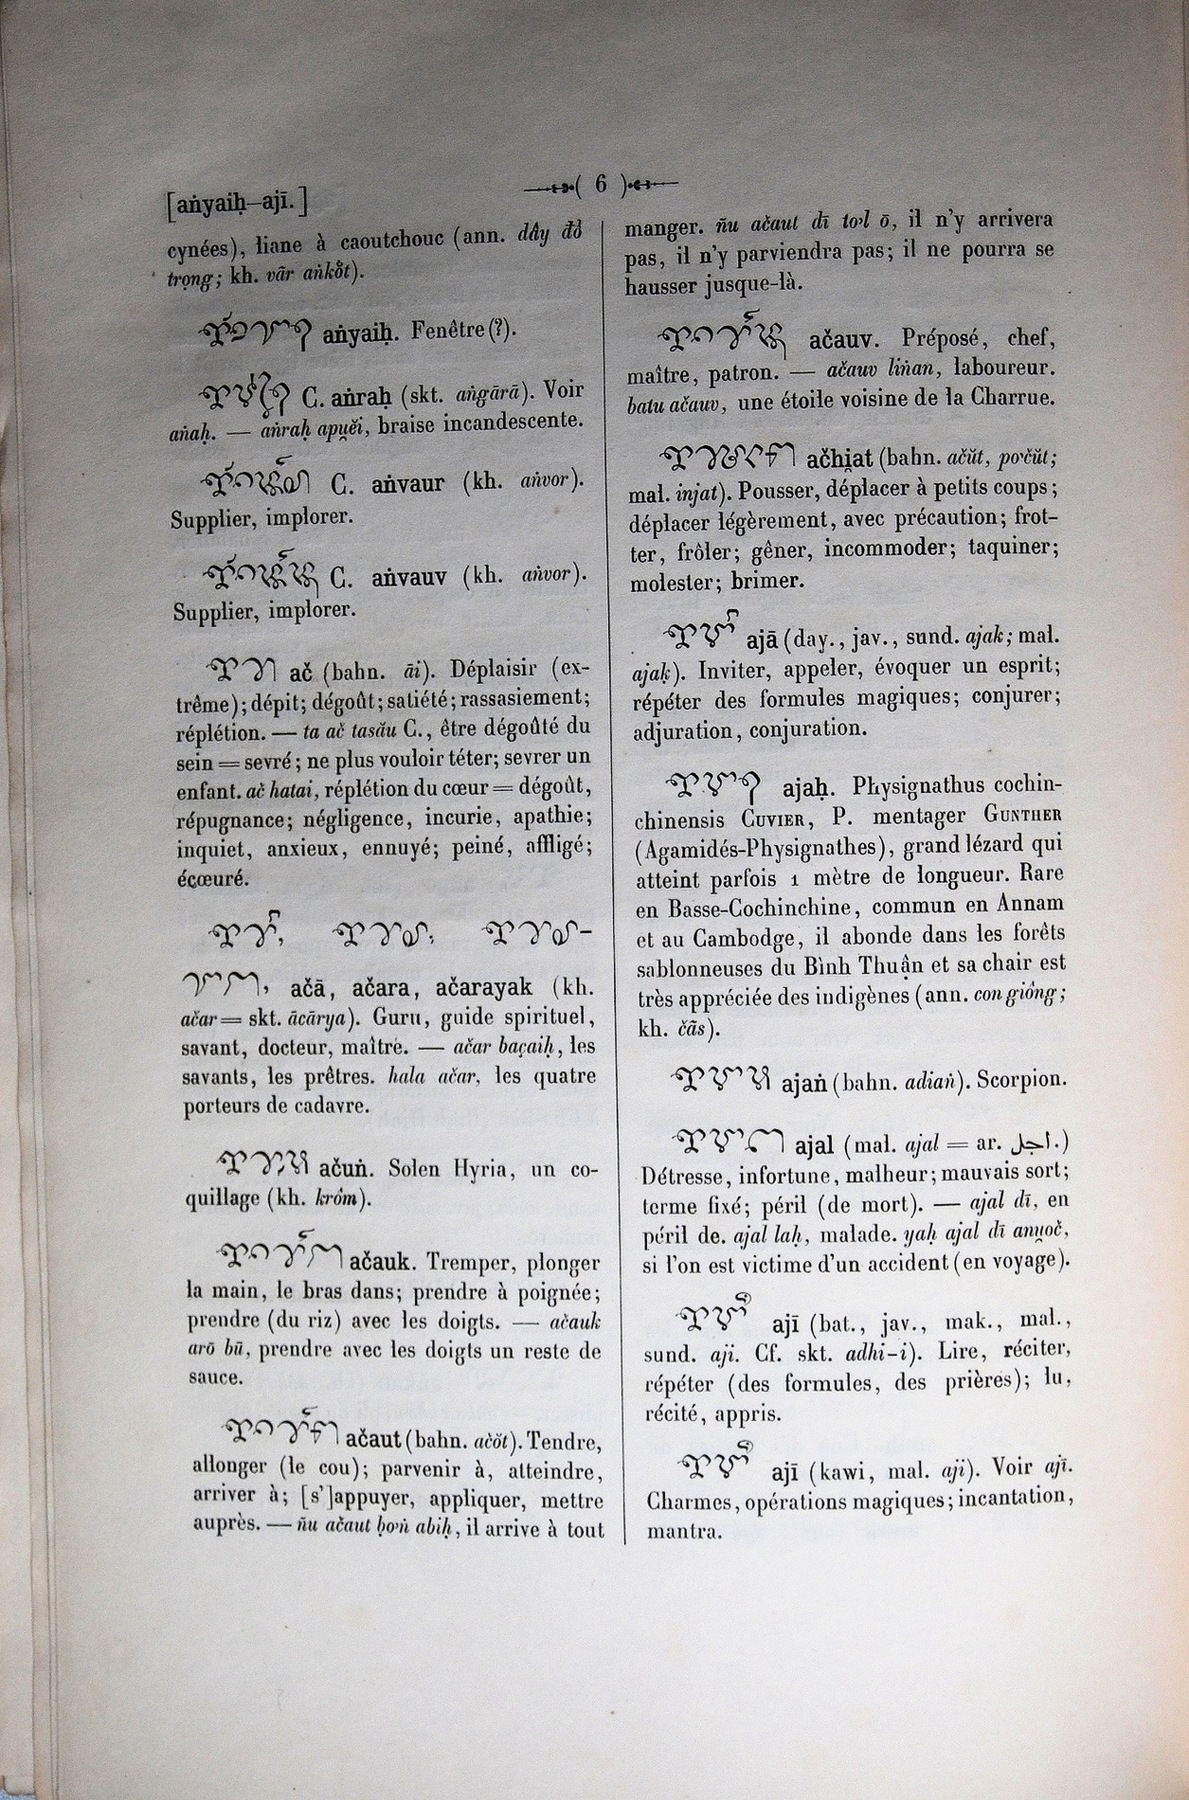 [aṅyaiḥ—ajī.]
( 6 )
cynées), liane à caoutchouc (ann. dây đô
trọng; kh. vār aṅkŏt).
aṅyaiḥ. Fenêtre (?).
C. aṅraḥ (skt. aṅgārā). Voir
aṅaḥ. — aṅraḥ apuĕi, braise incandescente.
C. aṅvaur (kh. aṅvor).
Supplier, implorer.
C. aṅvauv (kh. aṅvor).
Supplier, implorer.
ač (bahn. āi). Déplaisir (ex-
trême); dépit; dégoût; satiété; rassasiement;
réplétion. — ta ač tasău C., être dégoûté du
sein = sevré; ne plus vouloir téter; sevrer un
enfant. ač hatai, réplétion du cœur = dégoût,
répugnance; négligence, incurie, apathie;
inquiet, anxieux, ennuyé; peiné, affligé;
écœuré.
ačā, ačara, ačarayak (kh.
ačar = skt. ācārya). Guru, guide spirituel,
savant, docteur, maître. — ačar baçaiḥ, les
savants, les prêtres. hala ačar, les quatre
porteurs de cadavre.
ačuṅ. Solen Hyria, un co-
quillage (kh. krôm).
ačauk. Tremper, plonger
la main, le bras dans; prendre à poignée;
prendre (du riz) avec les doigts. — ačauk
arō bū, prendre avec les doigts un reste de
sauce.
ačaut (bahn. ačŏt). Tendre,
allonger (le cou); parvenir à, atteindre,
arriver à; [s']appuyer, appliquer, mettre
auprès. — ñu ačaut ḥơṅ abiḥ, il arrive à tout
manger. ñu ačaut dī tơl ō, il n'y arrivera
pas, il n'y parviendra pas; il ne pourra se
hausser jusque-là.
ačauv. Préposé, chef,
maître, patron. — ačauv liṅan, laboureur.
batu ačauv, une étoile voisine de la Charrue.
ačhi̯at (bahn. ačŭt, pơčŭt;
mal. injat). Pousser, déplacer à petits coups;
déplacer légèrement, avec précaution; frot-
ter, frôler; gêner, incommoder; taquiner;
molester; brimer.
ajā (day., jav., sund. ajak; mal.
ajaḳ). Inviter, appeler, évoquer un esprit;
répéter des formules magiques; conjurer;
adjuration, conjuration.
ajaḥ. Physignathus cochin-
chinensis Cuvier, P. mentager Gunther
(Agamidés-Physignathes), grand lézard qui
atteint parfois 1 mètre de longueur. Rare
en Basse-Cochinchine, commun en Annam
et au Cambodge, il abonde dans les forêts
sablonneuses du Bình Thuận et sa chair est
très appréciée des indigènes (ann. con giông;
kh. čās).
ajaṅ (bahn. adiaṅ). Scorpion.
ajal (mal. ajal = ar. اجل.)
Détresse, infortune, malheur; mauvais sort;
terme fixé; péril (de mort). — ajal dī, en
péril de. ajal laḥ, malade. yaḥ ajal dī anu̯oč,
si l'on est victime d'un accident (en voyage).
ajī (bat., jav., mak., mal.,
sund. aji. Cf. skt. adhi-i). Lire, réciter,
répéter (des formules, des prières); lu,
récité, appris.
ajī (kawi, mal. aji). Voir ajī.
Charmes, opérations magiques; incantation,
mantra.